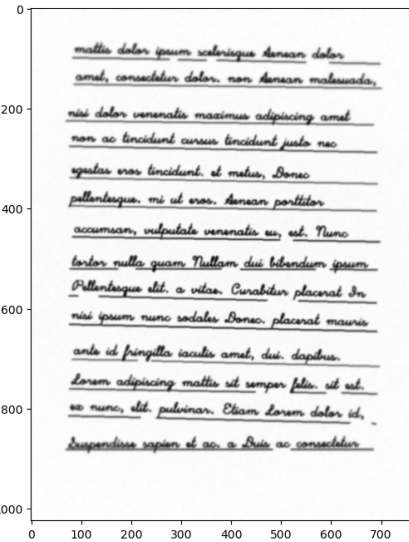 mattis dolor ipsum scelerisque Aenean dolor
amet, consectetur dolor. non Aenean malesuada,
nisi dolor venenatis maximus adipiscing amet
non ac tincidunt cursus tincidunt justo nec
egestas eros tincidunt. et metus, Donec
pellentesque. mi ut eros. Aenean porttitor
accumsan, vulputate venenatis eu, est. Nunc
tortor nulla quam Nullam dui bibendum ipsum
Pellentesque elit. a vitae. Curabitur placerat In
nisi ipsum nunc sodales Donec. placerat mauris
ante id fringilla iaculis amet, dui. dapibus.
Lorem adipiscing mattis sit semper felis. sit est.
ex nunc, elit. pulvinar. Etiam Lorem dolor id,
Suspendisse sapien et ac. a Duis ac consectetur